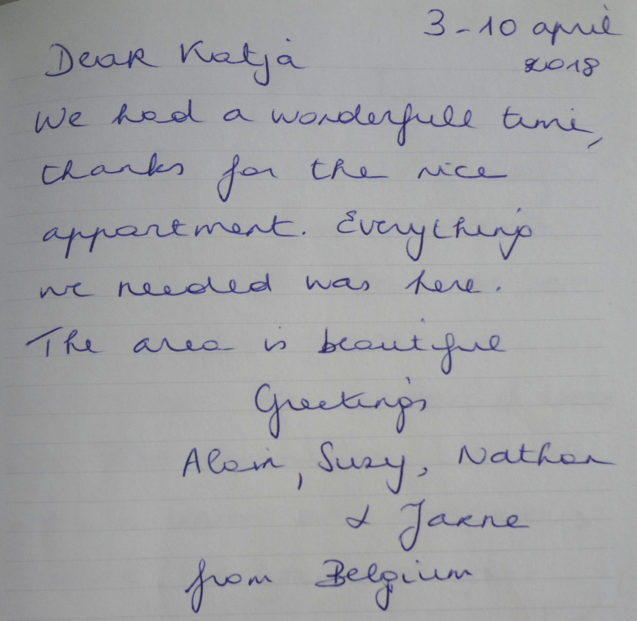 3-10 april
2018
Dear Katja
We had a wonderfull time,
thanks for the nice
appartment. Everything
we needed was here.
The area is beautiful
Greetings
Alain, Suzy, Nathan
& Jarne
from Belgium